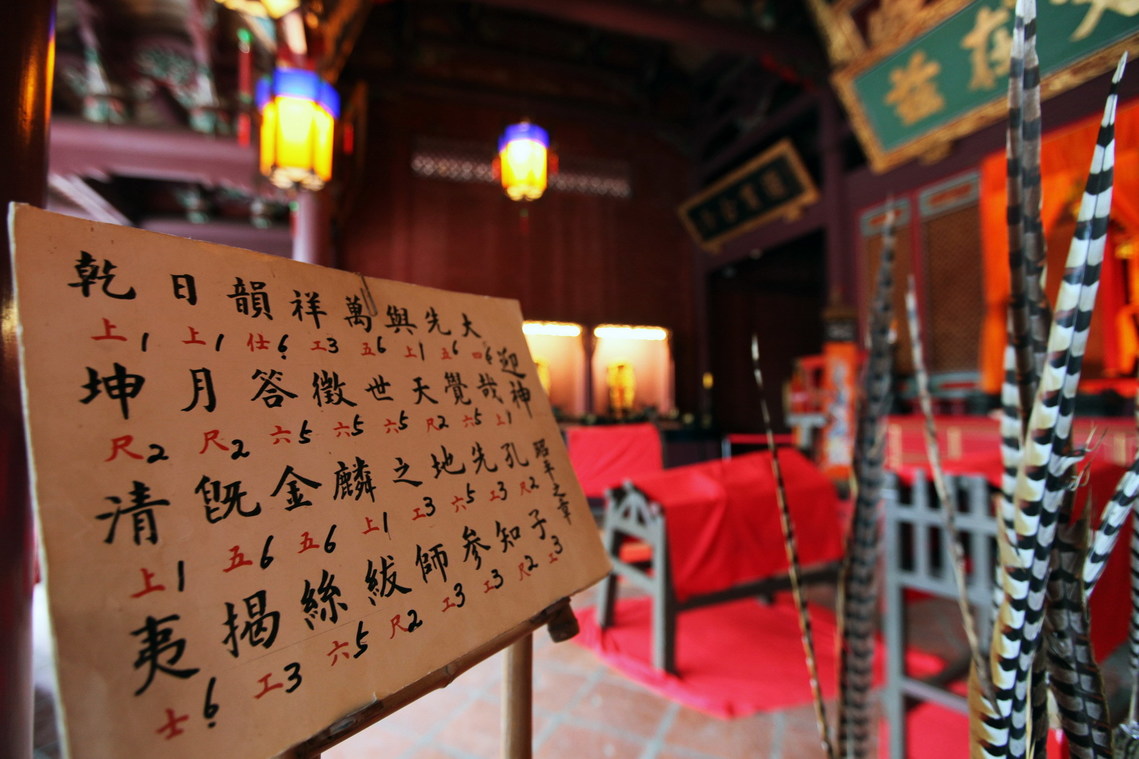 迎神 昭平之章
大四6哉上1孔尺2子工3
先五6覺六5先工3知尺2
與上1天尺2地六5參工3
萬五6世六5之工3師工3
祥工3徵六5麟上1紱尺2
韻仕6答六5金五6絲六5
日上1月尺2既五6揭工3
乾上1坤尺2清上1夷士6
在茲